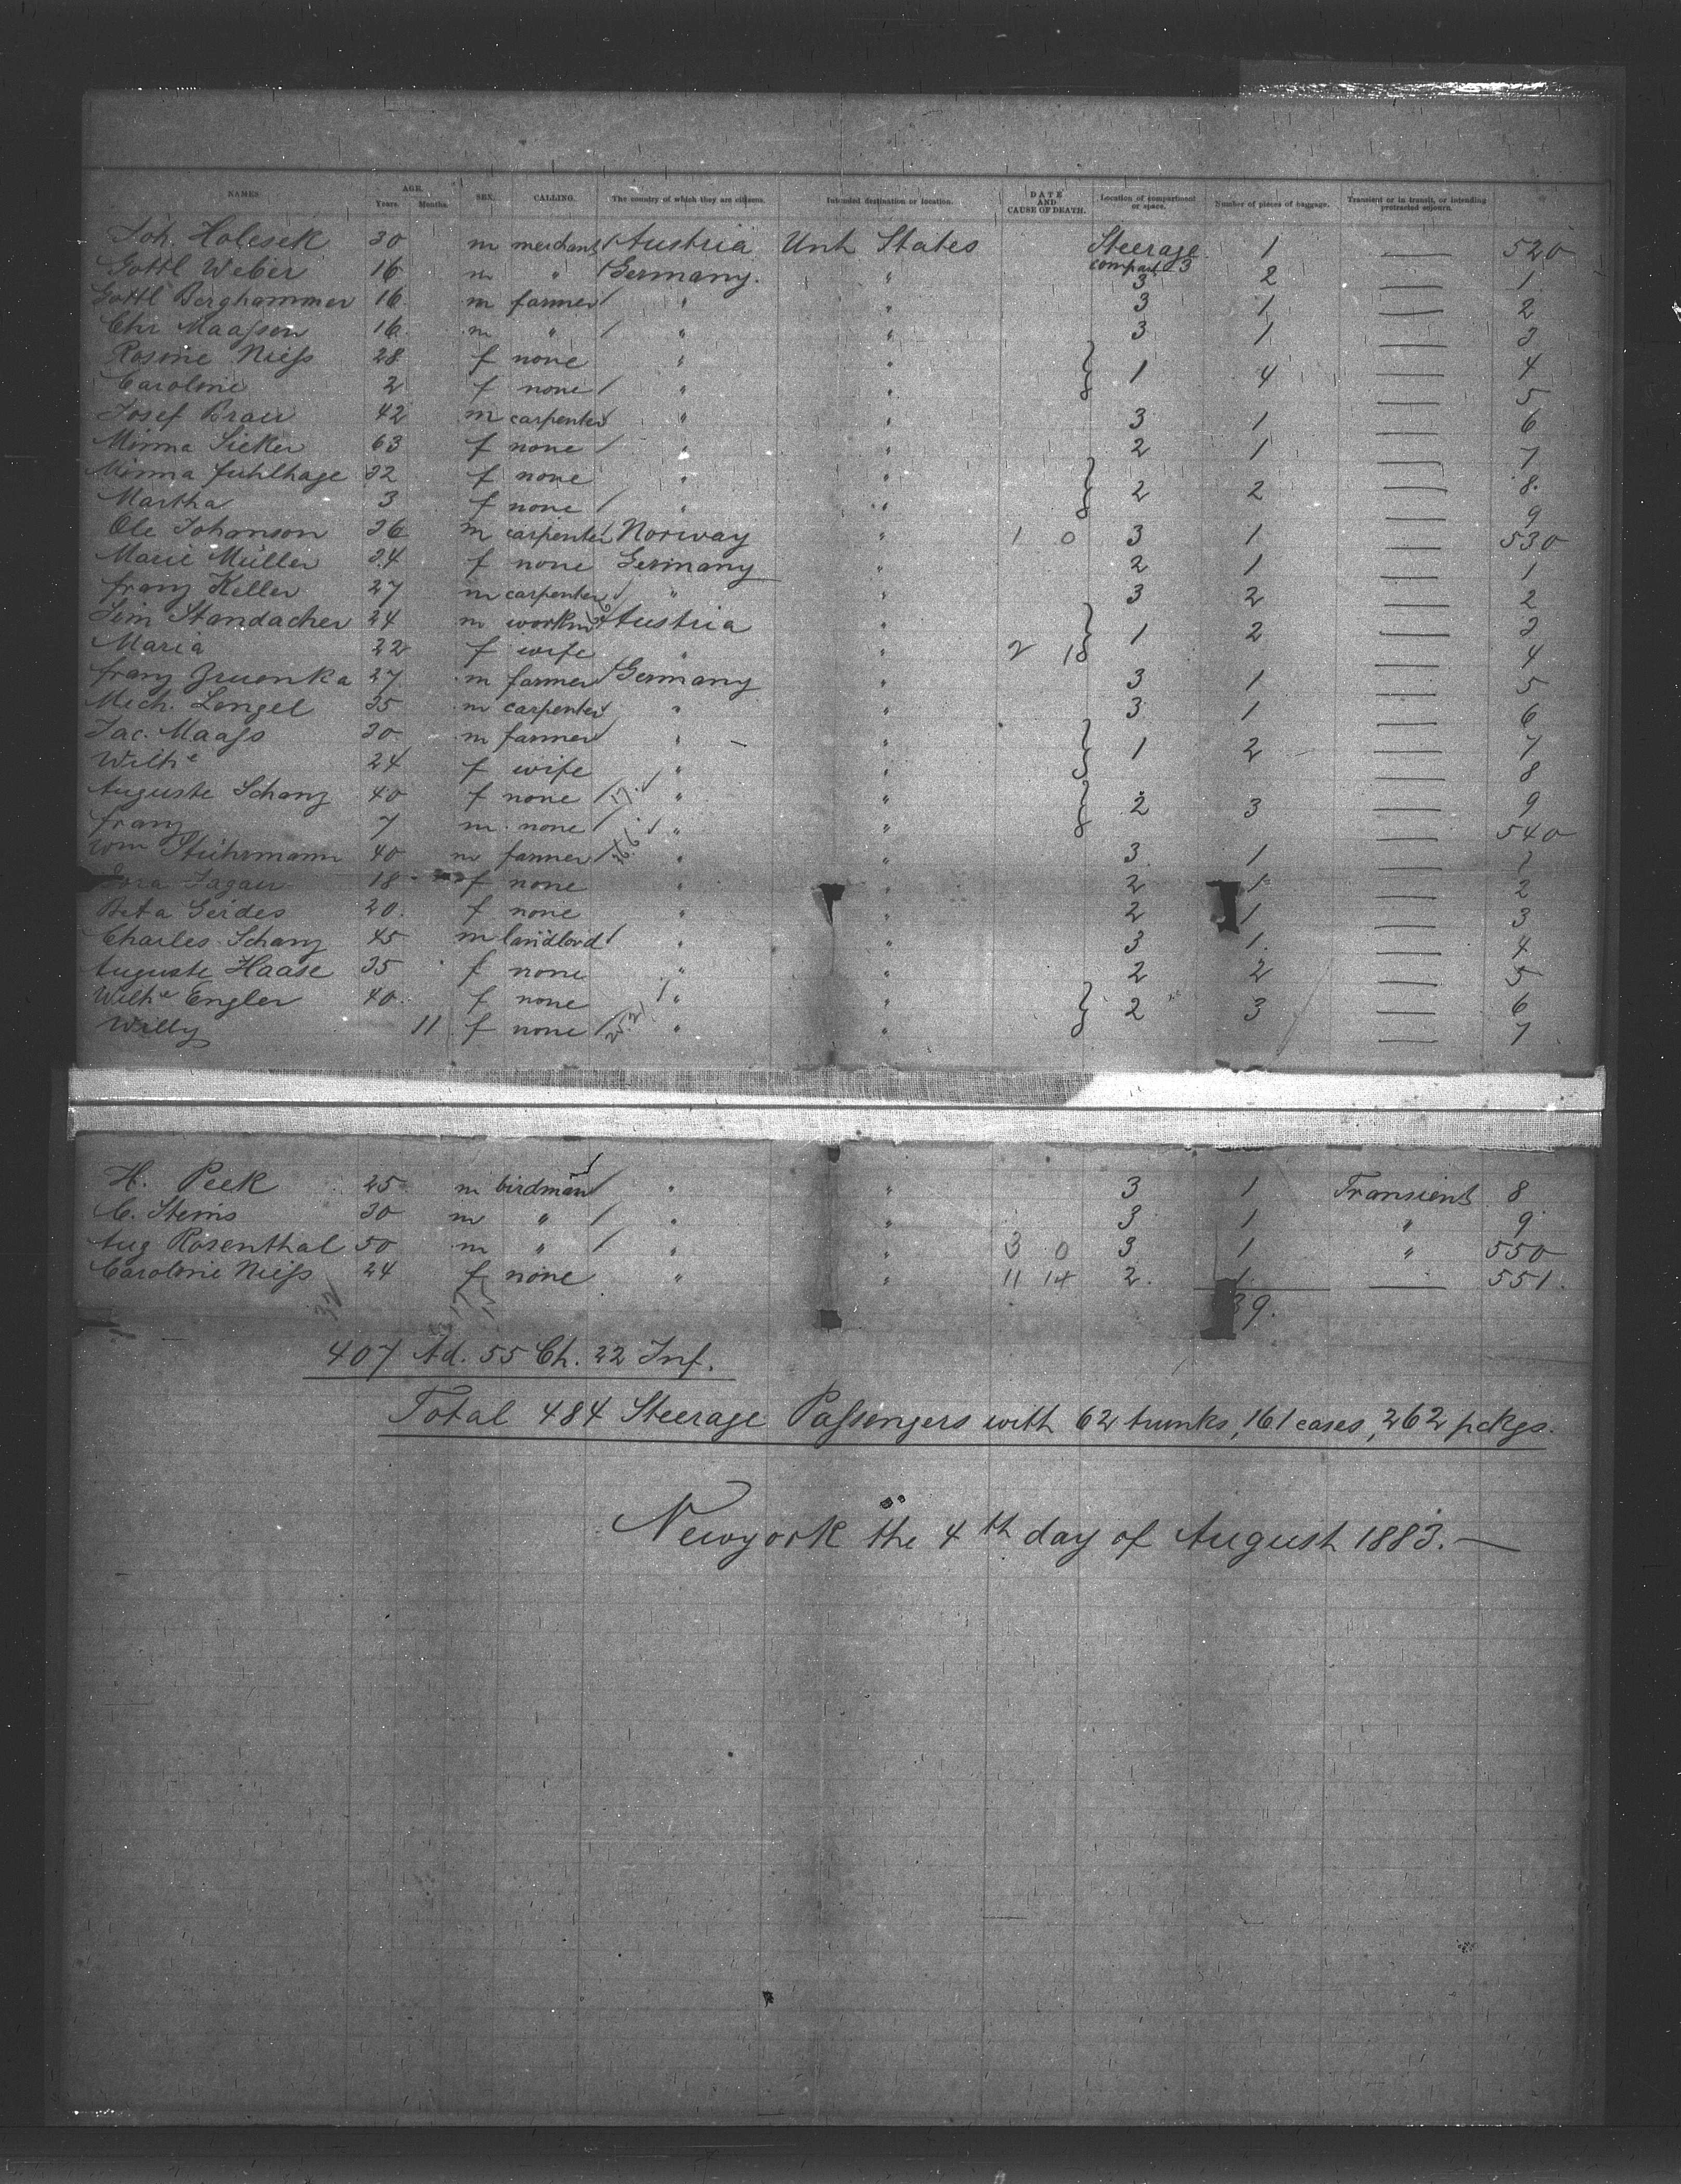 NAMES AGE. Years. Months. SEX. CALLING. The country of which they are citizens. Intended destination or location. DATE AND CAUSE OF DEATH. Location of compartment or space. Number of pieces of baggage. Transient or in transit, or intending protracted sojourn.
Joh. Holesek 30 m merchant Austria Unit States Steerage compart 3 1 — 520
Gottl Weber 16 m " Germany. " 3 2 — 1
Gottl Berghammer 16 m farmer " " 3 1 — 2
Chr Maassen 16 m " " " 3 1 — 3
Rosine Niess 28 f none " " 1 4 — 4
Caroline 2 f none " " — 5
Josef Brau 42 m carpenter " " 3 1 — 6
Minna Sieker 63 f none " " 2 1 — 7
Minna Fuhlhage 32 f none " " 2 2 — 8
Martha 3 f none " " — 9
Ole Johanson 26 m carpenter Norway " 1 0 3 1 — 530
Marie Müller 24 f none Germany " 2 1 — 1
Franz Keller 27 m carpenter " " 3 2 — 2
Sim Standacher 24 m workm Austria " 1 2 — 3
Maria 22 f wife " " 2 18 — 4
Franz Gruenka 27 m farmer Germany " 3 1 — 5
Mech. Lengel 35 m carpenter " " 3 1 — 6
Jac. Maass 30 m farmer " " 1 2 — 7
Wilhe 24 f wife " " — 8
Auguste Schanz 40 f none " " 2 3 — 9
Franz 7 m none " " — 540
Wm Stührmann 40 m farmer " " 3 1 — 1
Jagau 18 f none " " 2 1 — 2
Beta Gerdes 20 f none " " 2 1 — 3
Charles Schanz 45 m landlord " " 3 1 — 4
Auguste Haase 35 f none " " 2 2 — 5
Wilhe Engler 40 f none " " 2 3 — 6
Willy 11 f none " " — 7
H. Peek 25 m birdman " " 3 1 Transient 8
C. Stems 30 m " " " 3 1 " 9
Aug Rosenthal 50 m " " " 3 0 3 1 " 550
Caroline Niess 24 f none " " 11 14 2 1 — 551.
39.
407 Ad. 55 Ch. 22 Inf.
Total 484 Steerage Passengers with 62 trunks, 161 cases, 262 pckgs.
Newyork the 4th day of August 1883. —